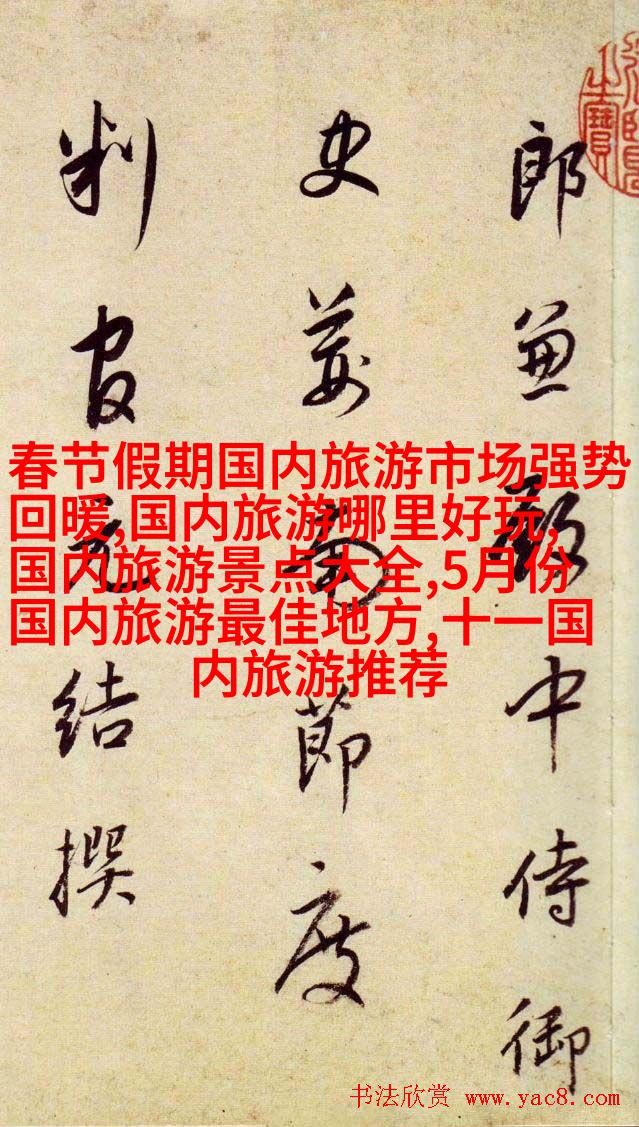 郎兼殿中侍御
史荊南節度
判官元結撰
春节假期国内旅游市场强势
回暖,国内旅游哪里好玩,
国内旅游景点大全,5月份
国内旅游最佳地方,十一国
内旅游推荐
书法欣赏 www.yac8.com